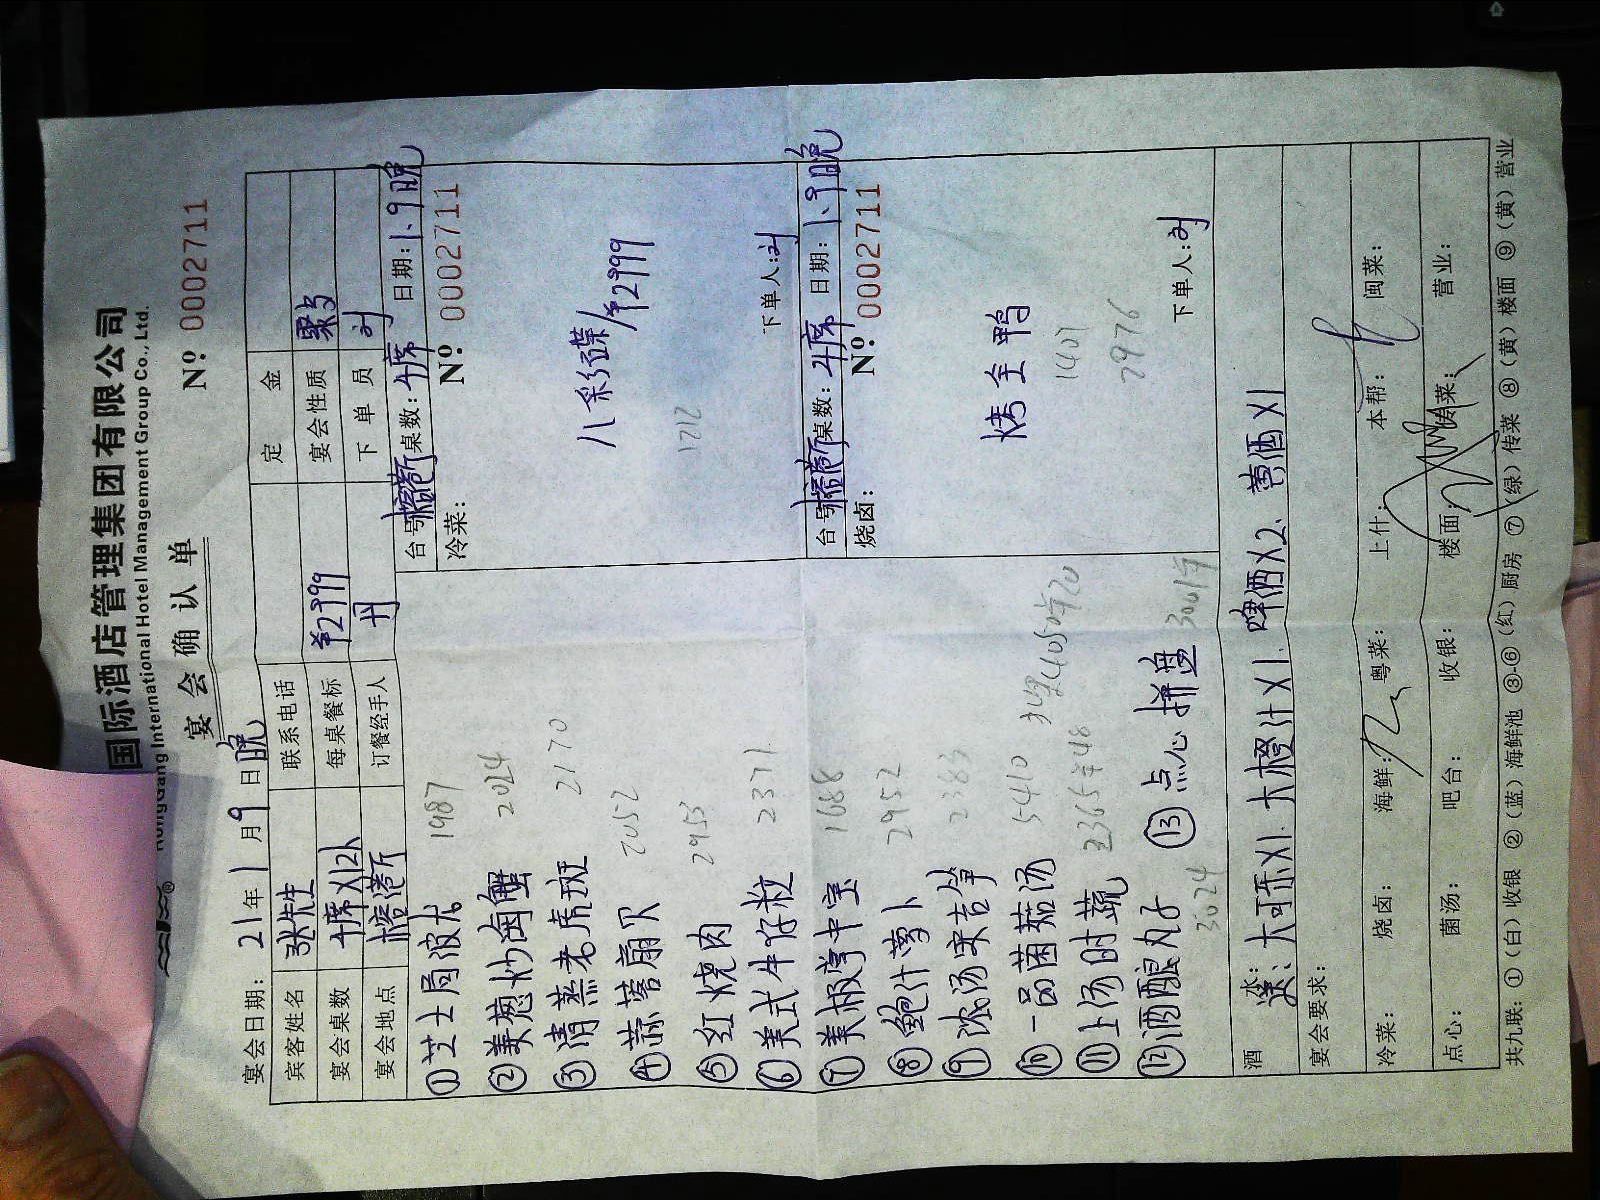 国际酒店管理集团有限公司
International Hotel Management Group Co., Ltd.
宴会确认单
Nº 0002711
宴会日期：21年1月9日晚
宾客姓名 张先生 联系电话 定金
宴会桌数 每桌餐标 ¥2999 宴会性质
宴会地点 订餐经手人 丹 下单员 刘
①芝士焗波龙 1987
②美葱炒肉蟹 2024
③清蒸老虎斑 2170
④蒜蓉扇贝 2052
⑤红烧肉 2953
⑥美式牛仔粒 2371
⑦美极掌中宝 1688
⑧鲍汁萝卜 2952
⑨浓汤宋吉笋 2383
⑩一品菌菇汤 5410
⑪上汤时蔬 2365
⑫酒酿丸子 3024
⑬点心拼盘
台号： 桌数： 日期：1、9晚
冷菜： Nº 0002711
八彩碟/¥2999
1212
下单人：刘
台号： 桌数： 日期：1、9晚
烧卤： Nº 0002711
烤全鸭
1407
2976
下单人：刘
酒水：大可乐X1、大橙汁X1、啤酒X2、黄酒X1
宴会要求：
冷菜： 烧卤： 海鲜： 粤菜： 上什： 本帮： 闽菜：
点心： 菌汤： 吧台： 收银： 楼面： 传菜： 营业：
共九联：①（白）收银 ②（蓝）海鲜池 ③-⑥（红）厨房 ⑦（绿）传菜 ⑧（黄）楼面 ⑨（黄）营业